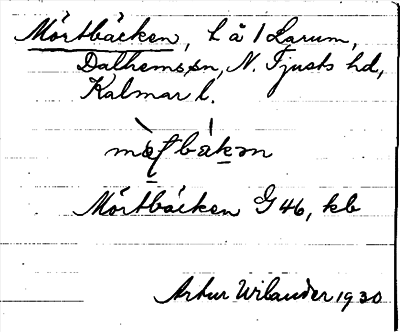 Mörtbäcken, l å 1 Larum,
Dalhems sn, N. Tjusts hd,
Kalmar l.
Mörtbäcken G 46, kb
Artur Wilander 1930